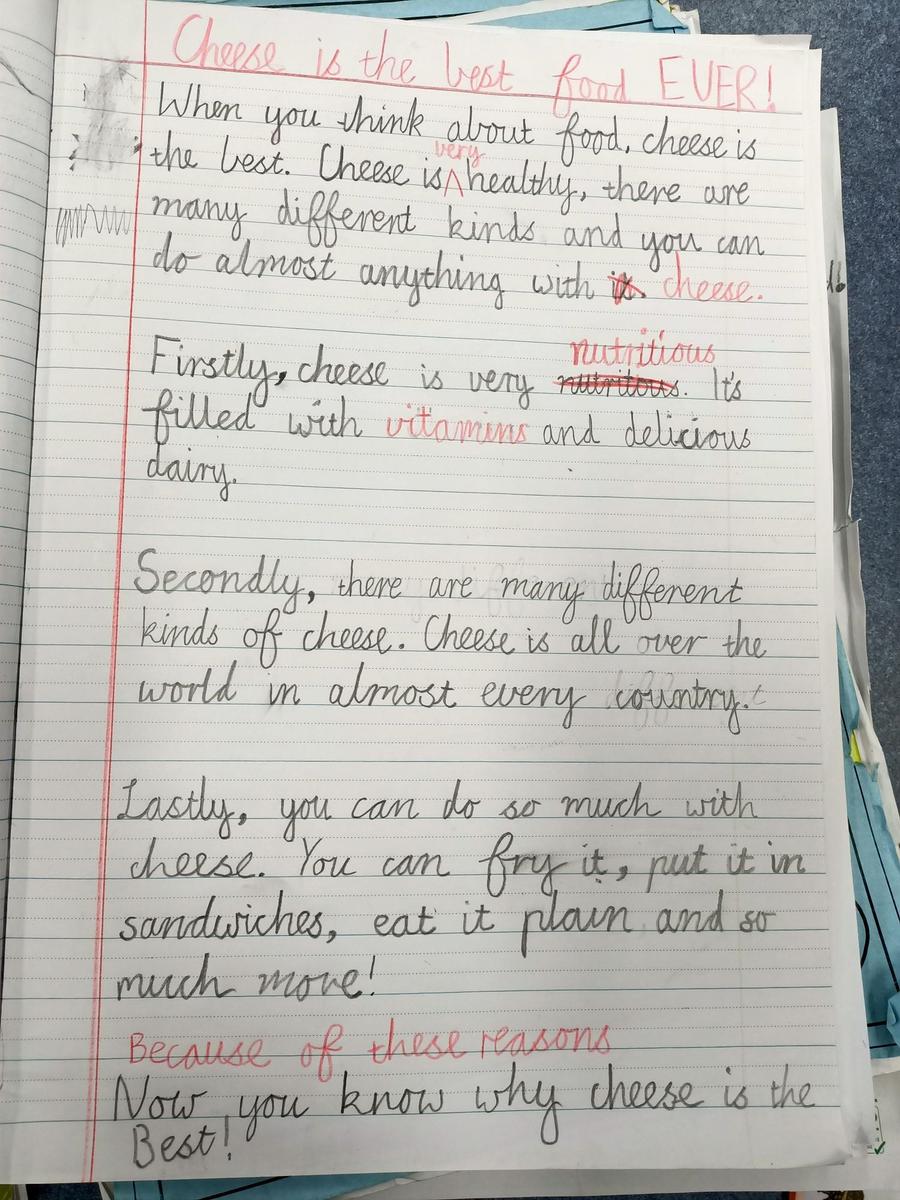 Cheese is the best food EVER!
When you think about food, cheese is
very
the best. Cheese is ^ healthy, there are
many different kinds and you can
do almost anything with it. cheese.
nutritious
Firstly, cheese is very nutritous. It's
filled with vitamins and delicious
dairy.
Secondly, there are many different
kinds of cheese. Cheese is all over the
world in almost every country.
Lastly, you can do so much with
cheese. You can fry it, put it in
sandwiches, eat it plain and so
much more!
Because of these reasons
Now you know why cheese is the
Best!